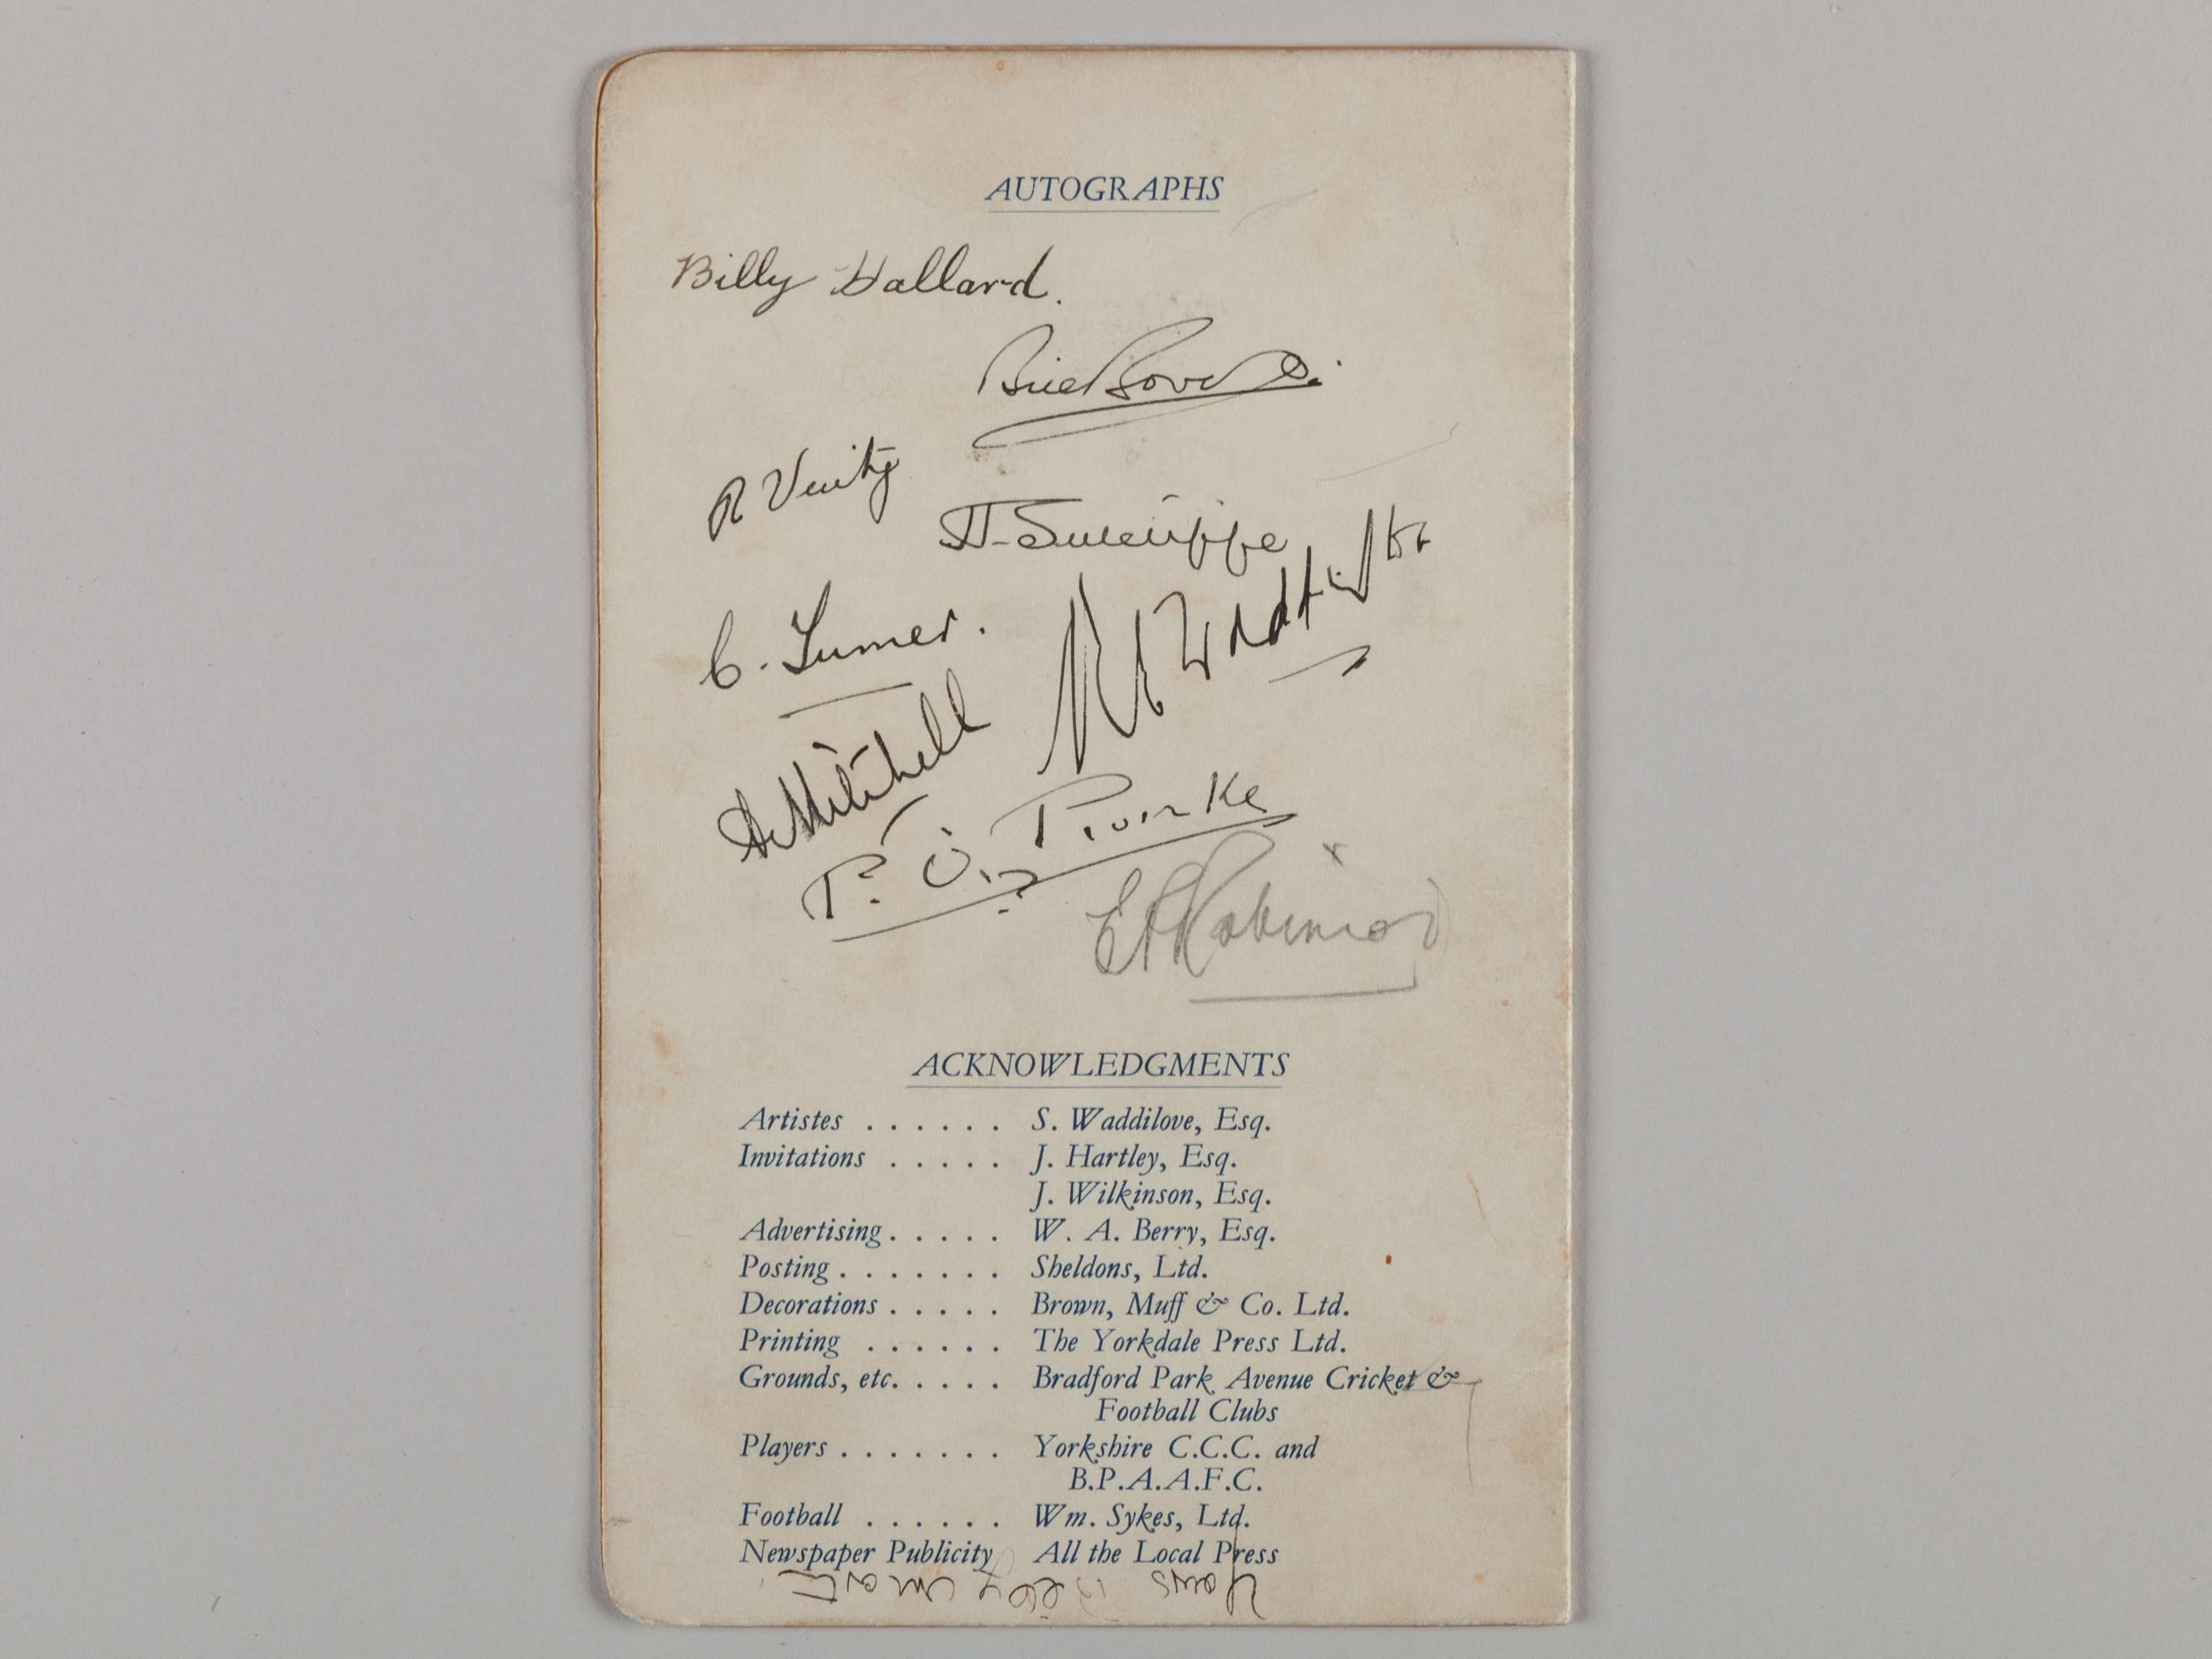 AUTOGRAPHS
Billy Hallard.
R Verity
H. Sutcliffe
C. Turner.
A. Mitchell
ER Robinson
ACKNOWLEDGMENTS
Artistes . . . . . . S. Waddilove, Esq.
Invitations . . . . . J. Hartley, Esq.
J. Wilkinson, Esq.
Advertising . . . . . W. A. Berry, Esq.
Posting . . . . . . . Sheldons, Ltd.
Decorations . . . . . Brown, Muff & Co. Ltd.
Printing . . . . . . The Yorkdale Press Ltd.
Grounds, etc. . . . . . Bradford Park Avenue Cricket &
Football Clubs
Players . . . . . . . Yorkshire C.C.C. and
B.P.A.A.F.C.
Football . . . . . . Wm. Sykes, Ltd.
Newspaper Publicity All the Local Press